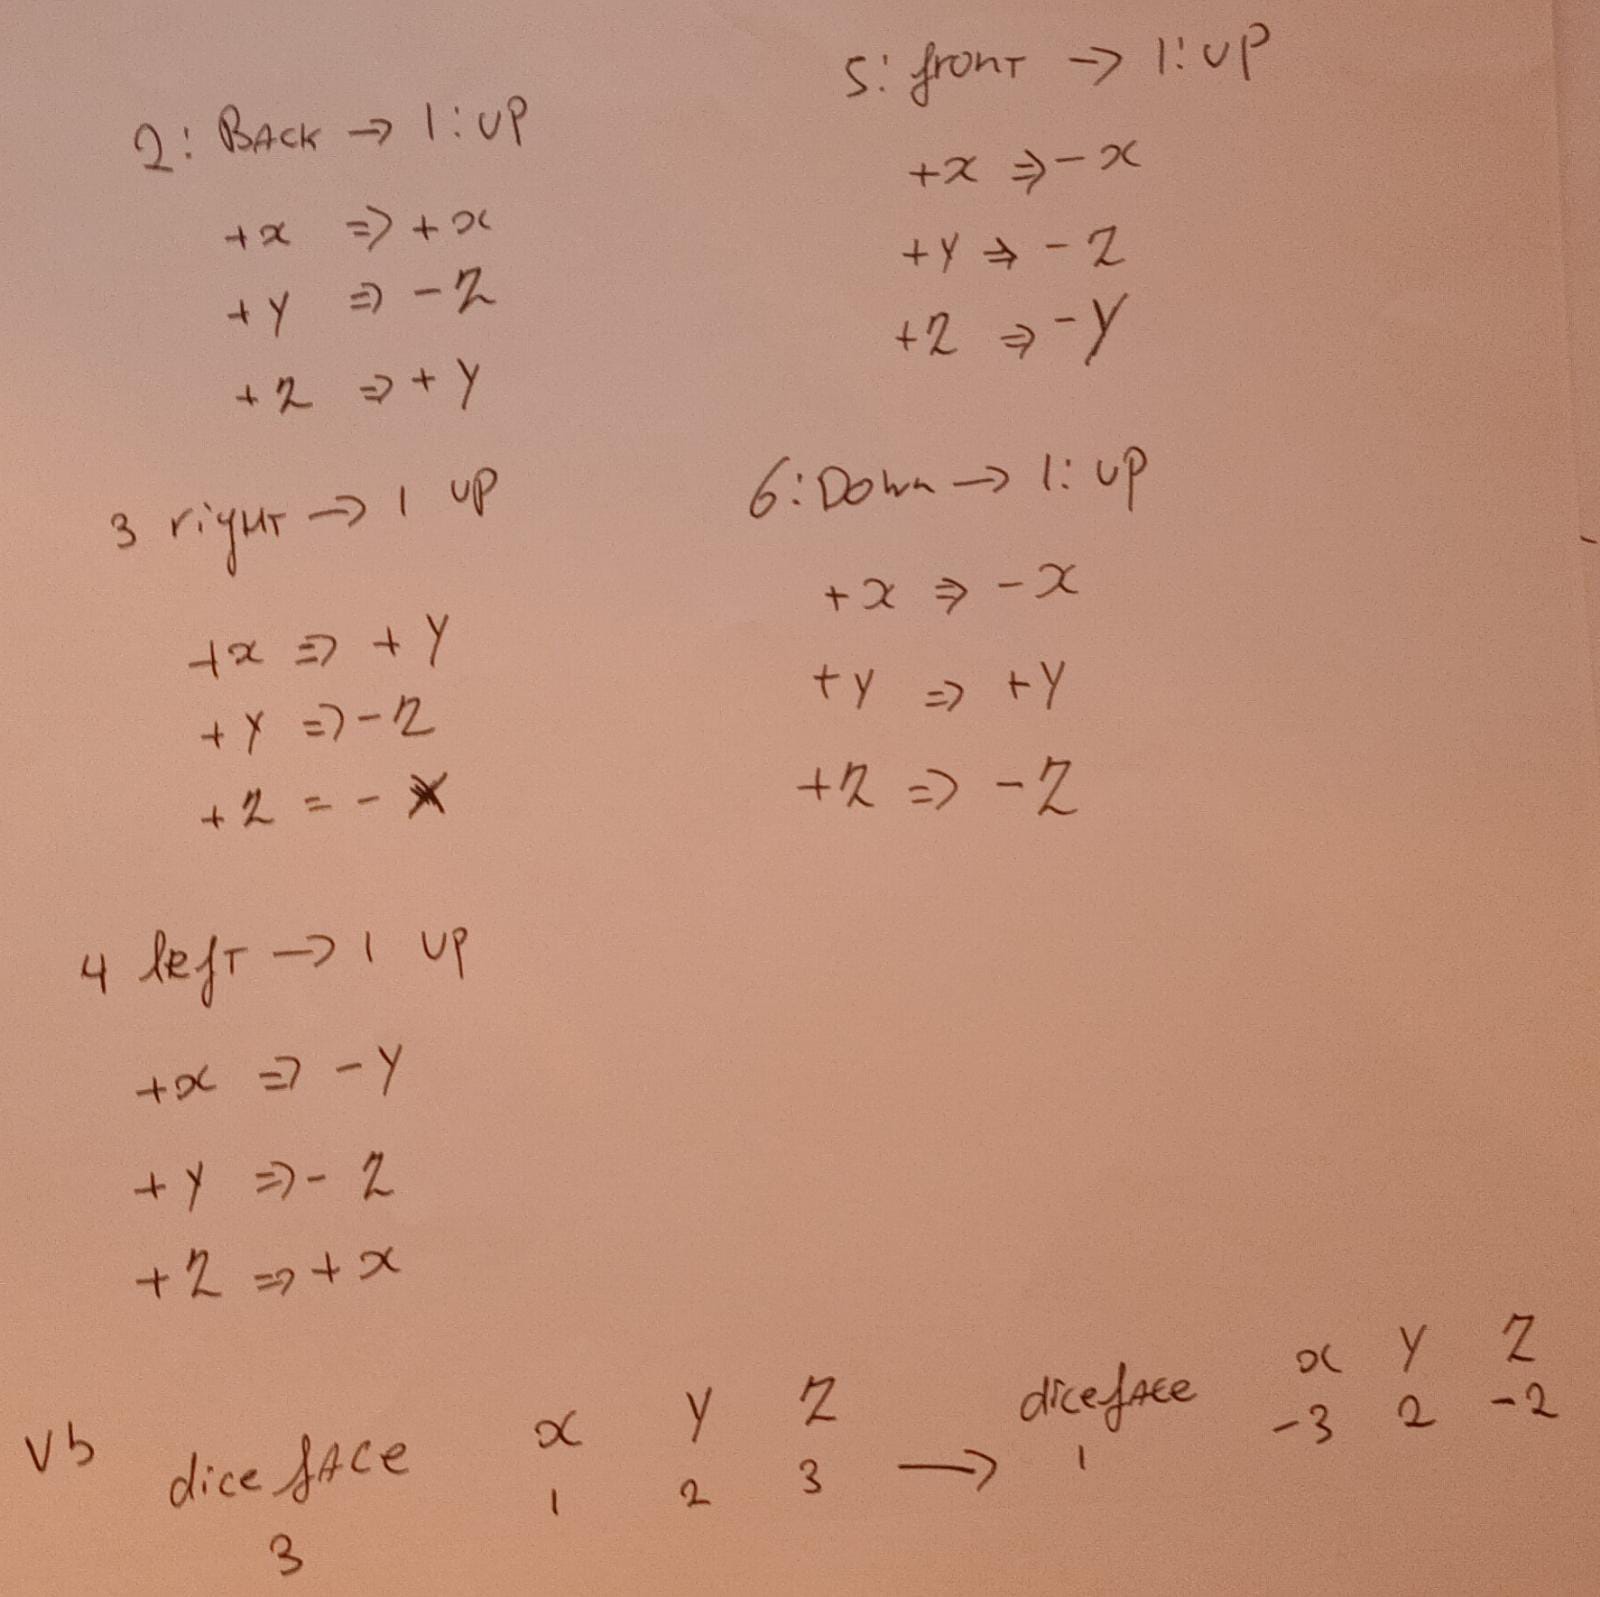 2: BACK → 1: UP
+x ⇒ +x
+y ⇒ -z
+z ⇒ +y
3 right → 1 UP
+x ⇒ +y
+y ⇒ -z
+z = - x
4 left → 1 UP
+x ⇒ -y
+y ⇒ -z
+z ⇒ +x
5: front → 1: UP
+x ⇒ -x
+y ⇒ -z
+z ⇒ -y
6: Down → 1: UP
+x ⇒ -x
+y ⇒ +y
+z ⇒ -z
vb dice face x y z → diceface x y z
3 1 2 3 1 -3 2 -2